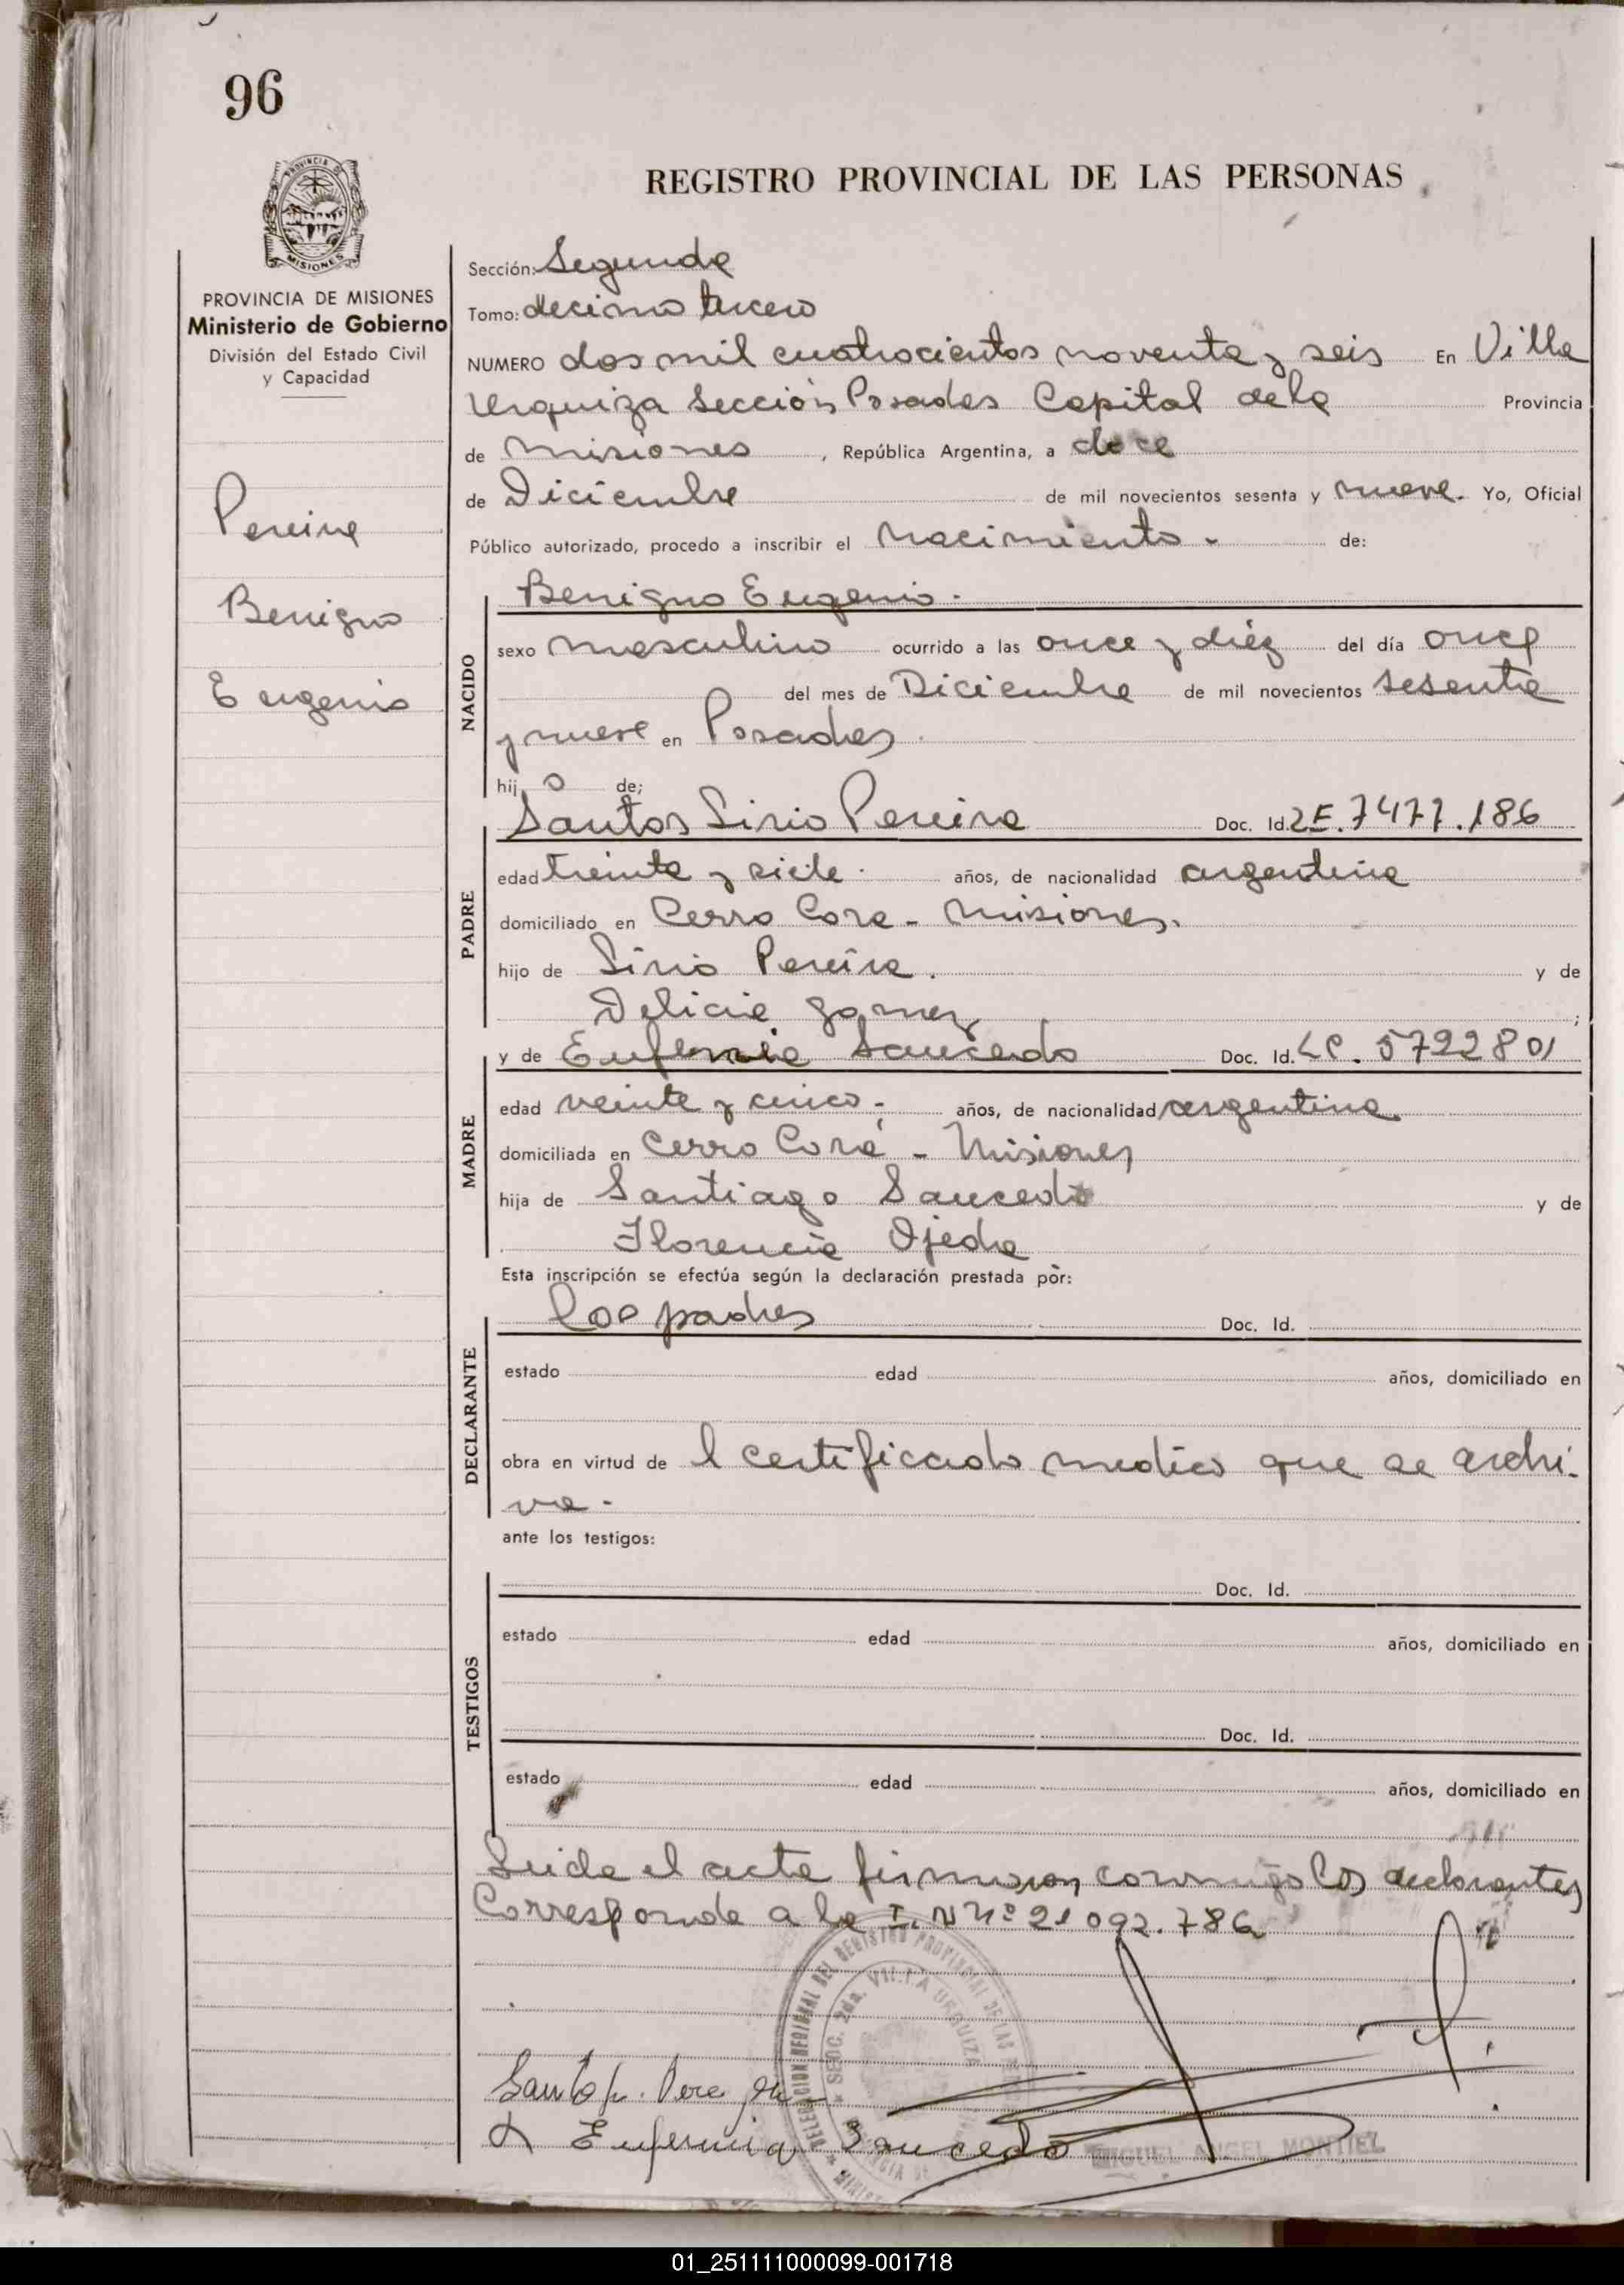 96
PROVINCIA DE
MISIONES
REGISTRO PROVINCIAL DE LAS PERSONAS
PROVINCIA DE MISIONES
Ministerio de Gobierno
División del Estado Civil
y Capacidad
Pereira
Benigno
Eugenio
Sección: Segunda
Tomo: decimo tercero
NUMERO dos mil cuatrocientos noventa y seis En Villa
Urquiza Sección Posadas Capital de la Provincia
de Misiones, República Argentina, a doce
de Diciembre de mil novecientos sesenta y nueve. Yo, Oficial
Público autorizado, procedo a inscribir el nacimiento - de:
Benigno Eugenio -
NACIDO
sexo masculino ocurrido a las once y diéz del día once
del mes de Diciembre de mil novecientos sesenta
y nueve en Posadas.
hij o de;
Santos Sirio Pereira Doc. Id. LE. 7477.186
PADRE
edad treinta y siete - años, de nacionalidad argentina
domiciliado en Cerro Cora - Misiones.
hijo de Sirio Pereira. y de
Delicia Gomez ;
y de Eufemia Saucedo Doc. Id. LC. 5722801
MADRE
edad veinte y cinco - años, de nacionalidad argentina
domiciliada en Cerro Corá - Misiones
hija de Santiago Saucedo y de
Florencia Ojeda
Esta inscripción se efectúa según la declaración prestada por:
los padres Doc. Id.
DECLARANTE
estado edad años, domiciliado en
obra en virtud de l certificado medico que se archi-
va -
ante los testigos:
Doc. Id.
TESTIGOS
estado edad años, domiciliado en
Doc. Id.
estado edad años, domiciliado en
Leida el acta firmaron conmigo los declarantes
Corresponde a la I. N Nº 21 092.786
DELEGACION REGIONAL DEL REGISTRO PROVINCIAL DE LAS
SECC. 2da. VILLA URQUIZA
Eufemia Saucedo
MIGUEL ANGEL MONTIEL
01_251111000099-001718